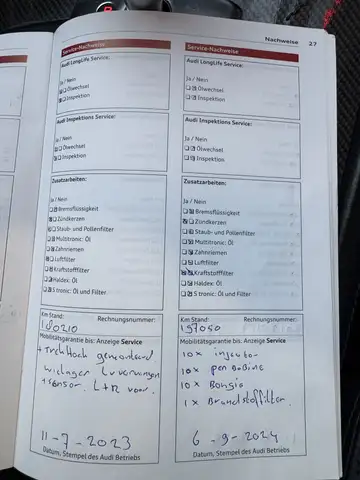 Nachweise 27
Service-Nachweise
Audi LongLife Service:
Ja / Nein
Ölwechsel
Inspektion
Audi Inspektions Service:
Ja / Nein
Ölwechsel
Inspektion
Zusatzarbeiten:
Ja / Nein
Bremsflüssigkeit
Zündkerzen
Staub- und Pollenfilter
Multitronic: Öl
Zahnriemen
Luftfilter
Kraftstofffilter
Haldex: Öl
S tronic: Öl und Filter
Km Stand: Rechnungsnummer:
180210
Mobilitätsgarantie bis: Anzeige Service
wielager
+ sensor. L+R voor.
11-7-2023
Datum, Stempel des Audi Betriebs
Service-Nachweise
Audi LongLife Service:
Ja / Nein
Ölwechsel
Inspektion
Audi Inspektions Service:
Ja / Nein
Ölwechsel
Inspektion
Zusatzarbeiten:
Ja / Nein
Bremsflüssigkeit
Zündkerzen
Staub- und Pollenfilter
Multitronic: Öl
Zahnriemen
Luftfilter
Kraftstofffilter
Haldex: Öl
S tronic: Öl und Filter
Km Stand: Rechnungsnummer:
Mobilitätsgarantie bis: Anzeige Service
10x injector
10x pen Bobine
10x Bougie
1x Brandstoffilter.
6-9-2024
Datum, Stempel des Audi Betriebs